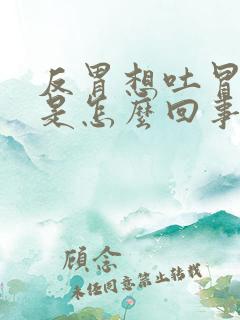 反胃想吐冒
是怎麼回事
顾念
未经同意禁止转载